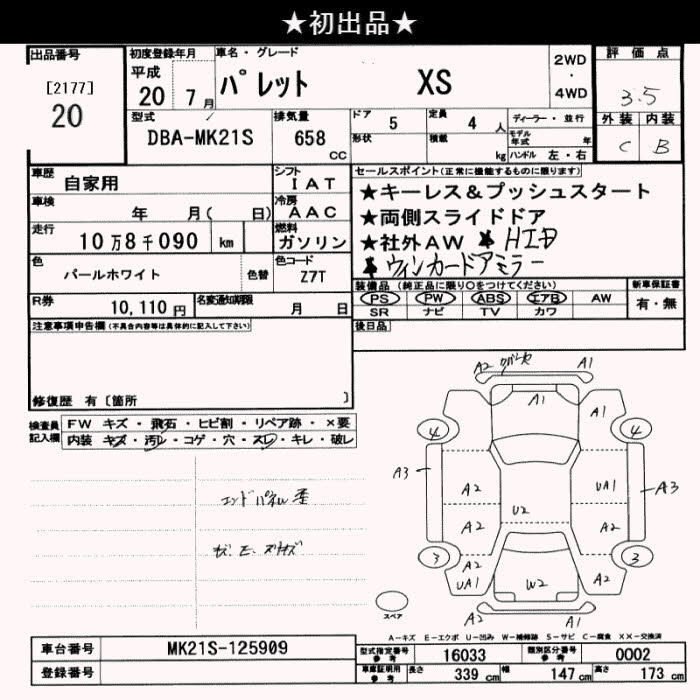 ★初出品★
出品番号
[2177]
20
初度登録年月
平成
20 7月
車名・グレード
パレット XS
2WD
・
4WD
評価点
3.5
外装 内装
C B
型式
DBA-MK21S
排気量
658
CC
ドア 5
形状
定員 4 人
積載 kg
ディーラー・並行
モデル年式 年
ハンドル 左・右
車歴
自家用
シフト
IAT
車検
年 月( 日)
冷房
AAC
走行
10万8千090 km
燃料
ガソリン
色
パールホワイト
色替
色コード
Z7T
R券
10,110円
名変通知期限
月 日
セールスポイント(正常に機能するものに限ります)
★キーレス&プッシュスタート
★両側スライドドア
★社外AW ★HID
★ウィンカードアミラー
装備品(純正品に限り○をつけてください)
PS PW ABS エアB AW
SR ナビ TV カワ
新車保証書
有・無
後日品
注意事項申告欄(不具合内容等は具体的に記入して下さい)
修復歴 有〔箇所 〕
検査員
記入欄
FW キズ・飛石・ヒビ割・リペア跡・×要
内装 キズ・汚レ・コゲ・穴・スレ・キレ・破レ
エンドパネル歪
A2 A1
A1
A1
4 4
A3
A3
A2
UA1
A2
U2
A2
3 3
A2
UA1
W2
A2
A2
A1
スペア
A-キズ E-エクボ U-凹み W-補修跡 S-サビ C-腐食 XX-交換済
車台番号
MK21S-125909
登録番号
型式指定番号
参考
16033
類別区分番号
参考
0002
車庫証明用
参考
長さ 339 cm
幅 147 cm
高さ 173 cm